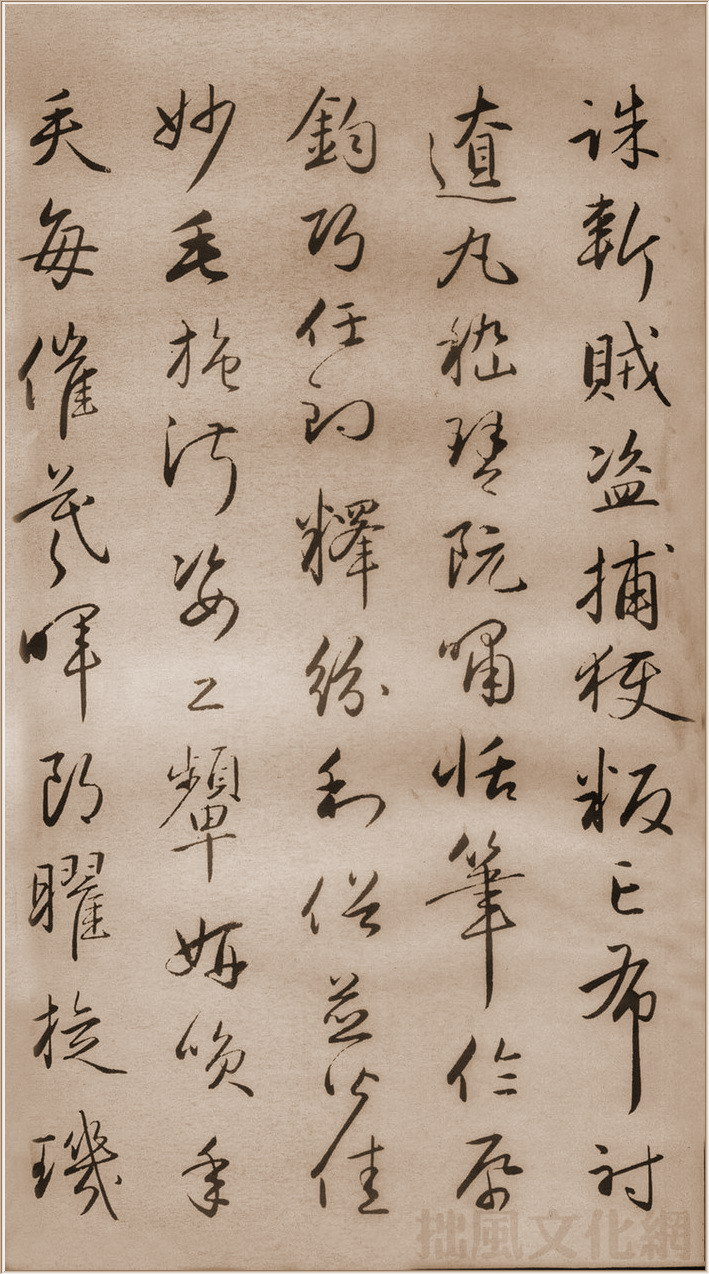 誅斬賊盗捕獲叛亡布射
遼丸嵇琴阮嘯恬筆倫帋
鈞巧任釣釋紛利俗並皆佳
妙毛施淑姿工顰妍咲年
矢每催羲暉朗曜旋璣
拙風文化網